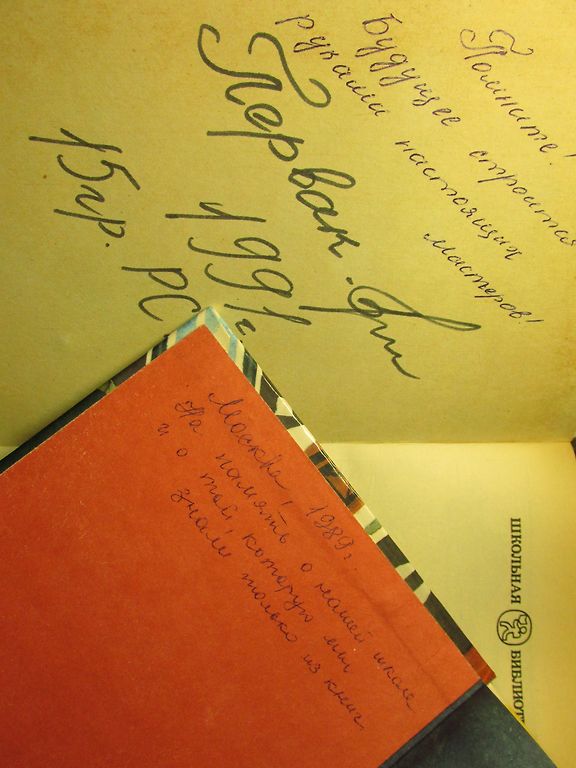 Помните!
Будущее строится
руками настоящих
мастеров!
Первак.
1991г
15гр. РС
Москва, 1989г.
На память о нашей школе
и о той, которую мы
знали только из книг.
ШКОЛЬНАЯ БИБЛИОТ